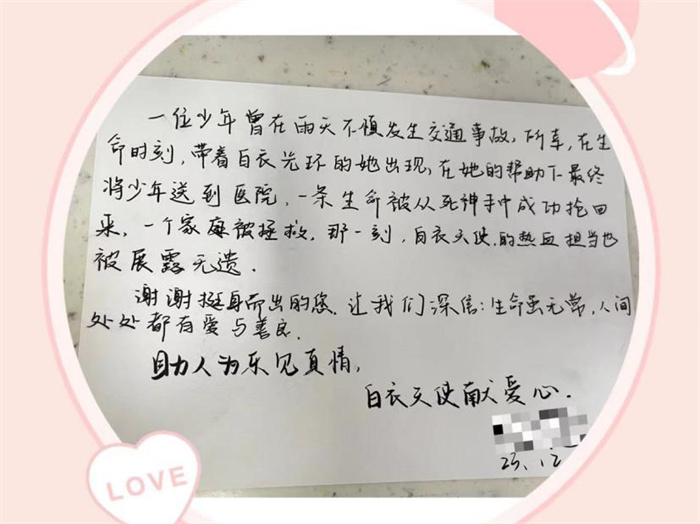 一位少年曾在雨天不慎发生交通事故,所幸,在生
命时刻,带着白衣光环的她出现,在她的帮助下最终
将少年送到医院,一条生命被从死神手中成功抢回
来,一个家庭被拯救。那一刻,白衣天使的热血担当也
被展露无遗.
谢谢挺身而出的您,让我们深信:生命虽无常,人间
处处都有爱与善良.
助人为乐见真情,
白衣天使献爱心.
25.12
LOVE